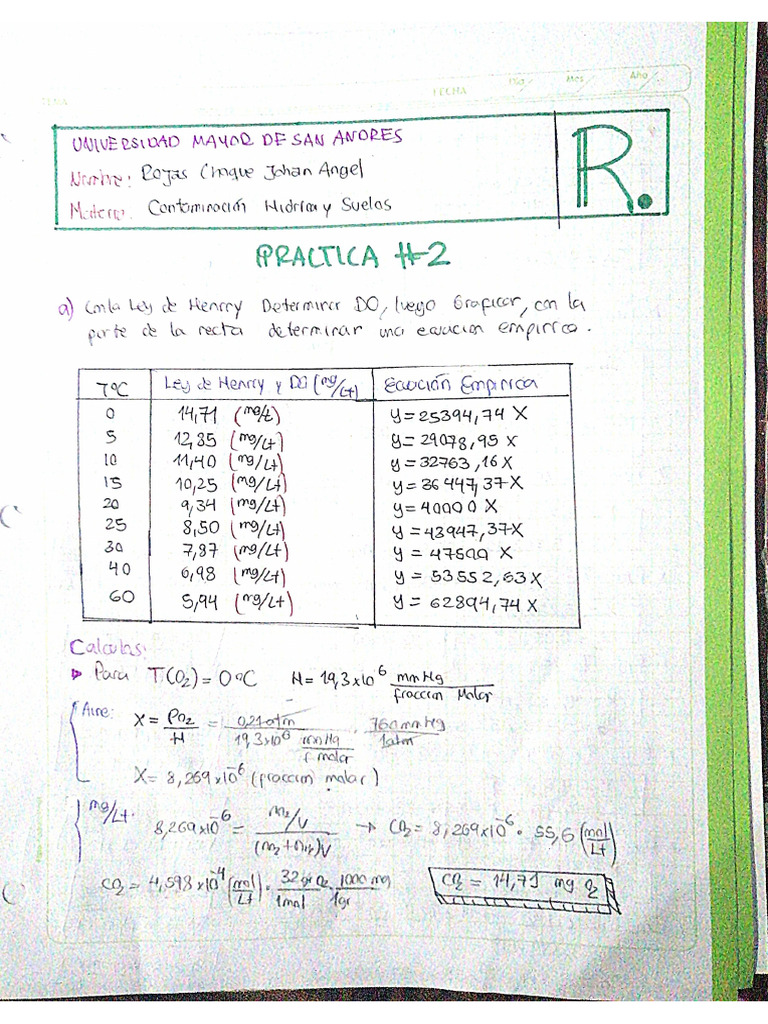 TEMA
FECHA Día Mes Año
UNIVERSIDAD MAYOR DE SAN ANDRES
Nombre: Rojas Cinque Johan Angel
Materia: Contaminación Hidrica y Suelos
R.
PRACTICA #2
a) Con la Ley de Henrry Determinar DO, luego Graficar, con la
parte de la recta determinar una ecuacion empirica.
T°C Ley de Henrry y DO (mg/Lt) Ecuación Empirica
0 14,71 (mg/Lt) y=25394,74 X
5 12,85 (mg/Lt) y=29078,95 X
10 11,40 (mg/Lt) y=32763,16X
15 10,25 (mg/Lt) y=36447,37X
20 9,34 (mg/Lt) y=40000 X
25 8,50 (mg/Lt) y=43947,37X
30 7,87 (mg/Lt) y=47500 X
40 6,98 (mg/Lt) y=53552,63X
60 5,94 (mg/Lt) y=62894,74X
Calculos:
Para T(O₂)=0°C H=19,3x10⁶ mmHg/fraccion Molar
Aire: X = PO₂/H = 0,21 atm/19,3x10⁶ mmHg/f. molar · 760 mmHg/1 atm
X= 8,269x10⁻⁶ (fraccion molar)
mg/Lt. 8,269x10⁻⁶ = n₂/V/(n₂+nH₂)V → CO₂ = 8,269x10⁻⁶ · 55,6 (mol/Lt)
CO₂ = 4,598x10⁻⁴ (mol/Lt) · 32gr O₂/1mol · 1000 mg/1gr CO₂ = 14,71 mg O₂